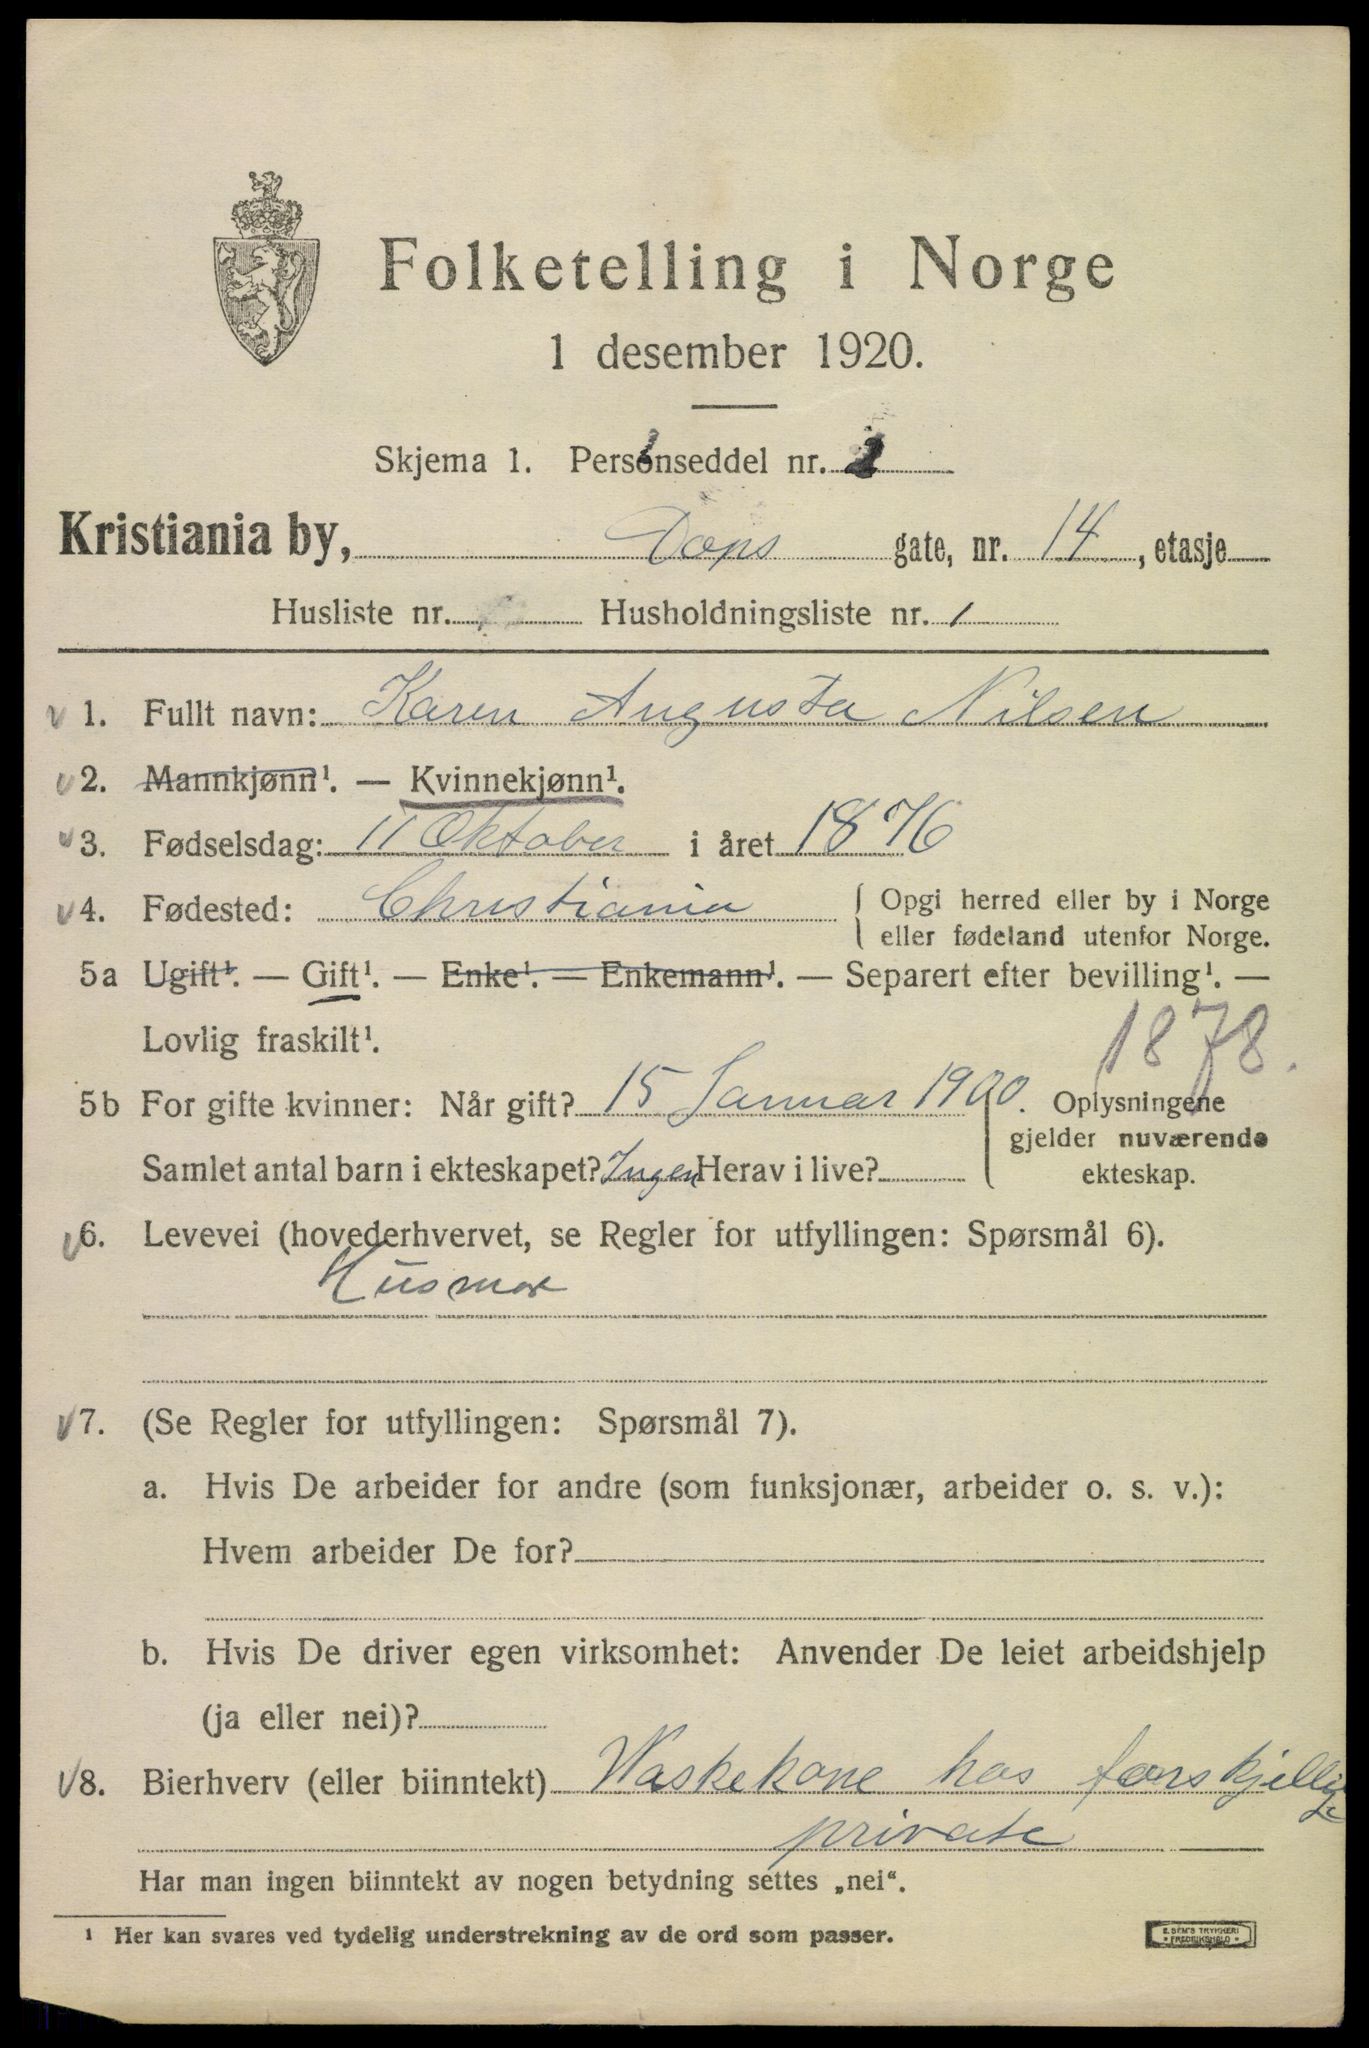 Folketelling i Norge
1 desember 1920.
Skjema 1. Personseddel nr.
Kristiania by, Dops gate, nr. 14, etasje
Husliste nr. Husholdningsliste nr. 1
1. Fullt navn: Karen Augusta Nilsen
2. Mannkjønn¹. — Kvinnekjønn¹.
3. Fødselsdag: 11 Oktober i året 1876
4. Fødested: Christiania { Opgi herred eller by i Norge
eller fødeland utenfor Norge.
5a Ugift¹. — Gift¹. — Enke¹. — Enkemann¹. — Separert efter bevilling¹. —
Lovlig fraskilt¹.
1878.
5b For gifte kvinner: Når gift? 15 Januar 1900. Oplysningene
gjelder nuværende
Samlet antal barn i ekteskapet? Ingen Herav i live? ekteskap.
6. Levevei (hovederhvervet, se Regler for utfyllingen: Spørsmål 6).
Husmor
7. (Se Regler for utfyllingen: Spørsmål 7).
a. Hvis De arbeider for andre (som funksjonær, arbeider o. s. v.):
Hvem arbeider De for?
b. Hvis De driver egen virksomhet: Anvender De leiet arbeidshjelp
(ja eller nei)?
8. Bierhverv (eller biinntekt) Waskekone hos forskjellige
private
Har man ingen biinntekt av nogen betydning settes „nei“.
¹ Her kan svares ved tydelig understrekning av de ord som passer.
E. SEM'S TRYKKERI
FREDRIKSHALD